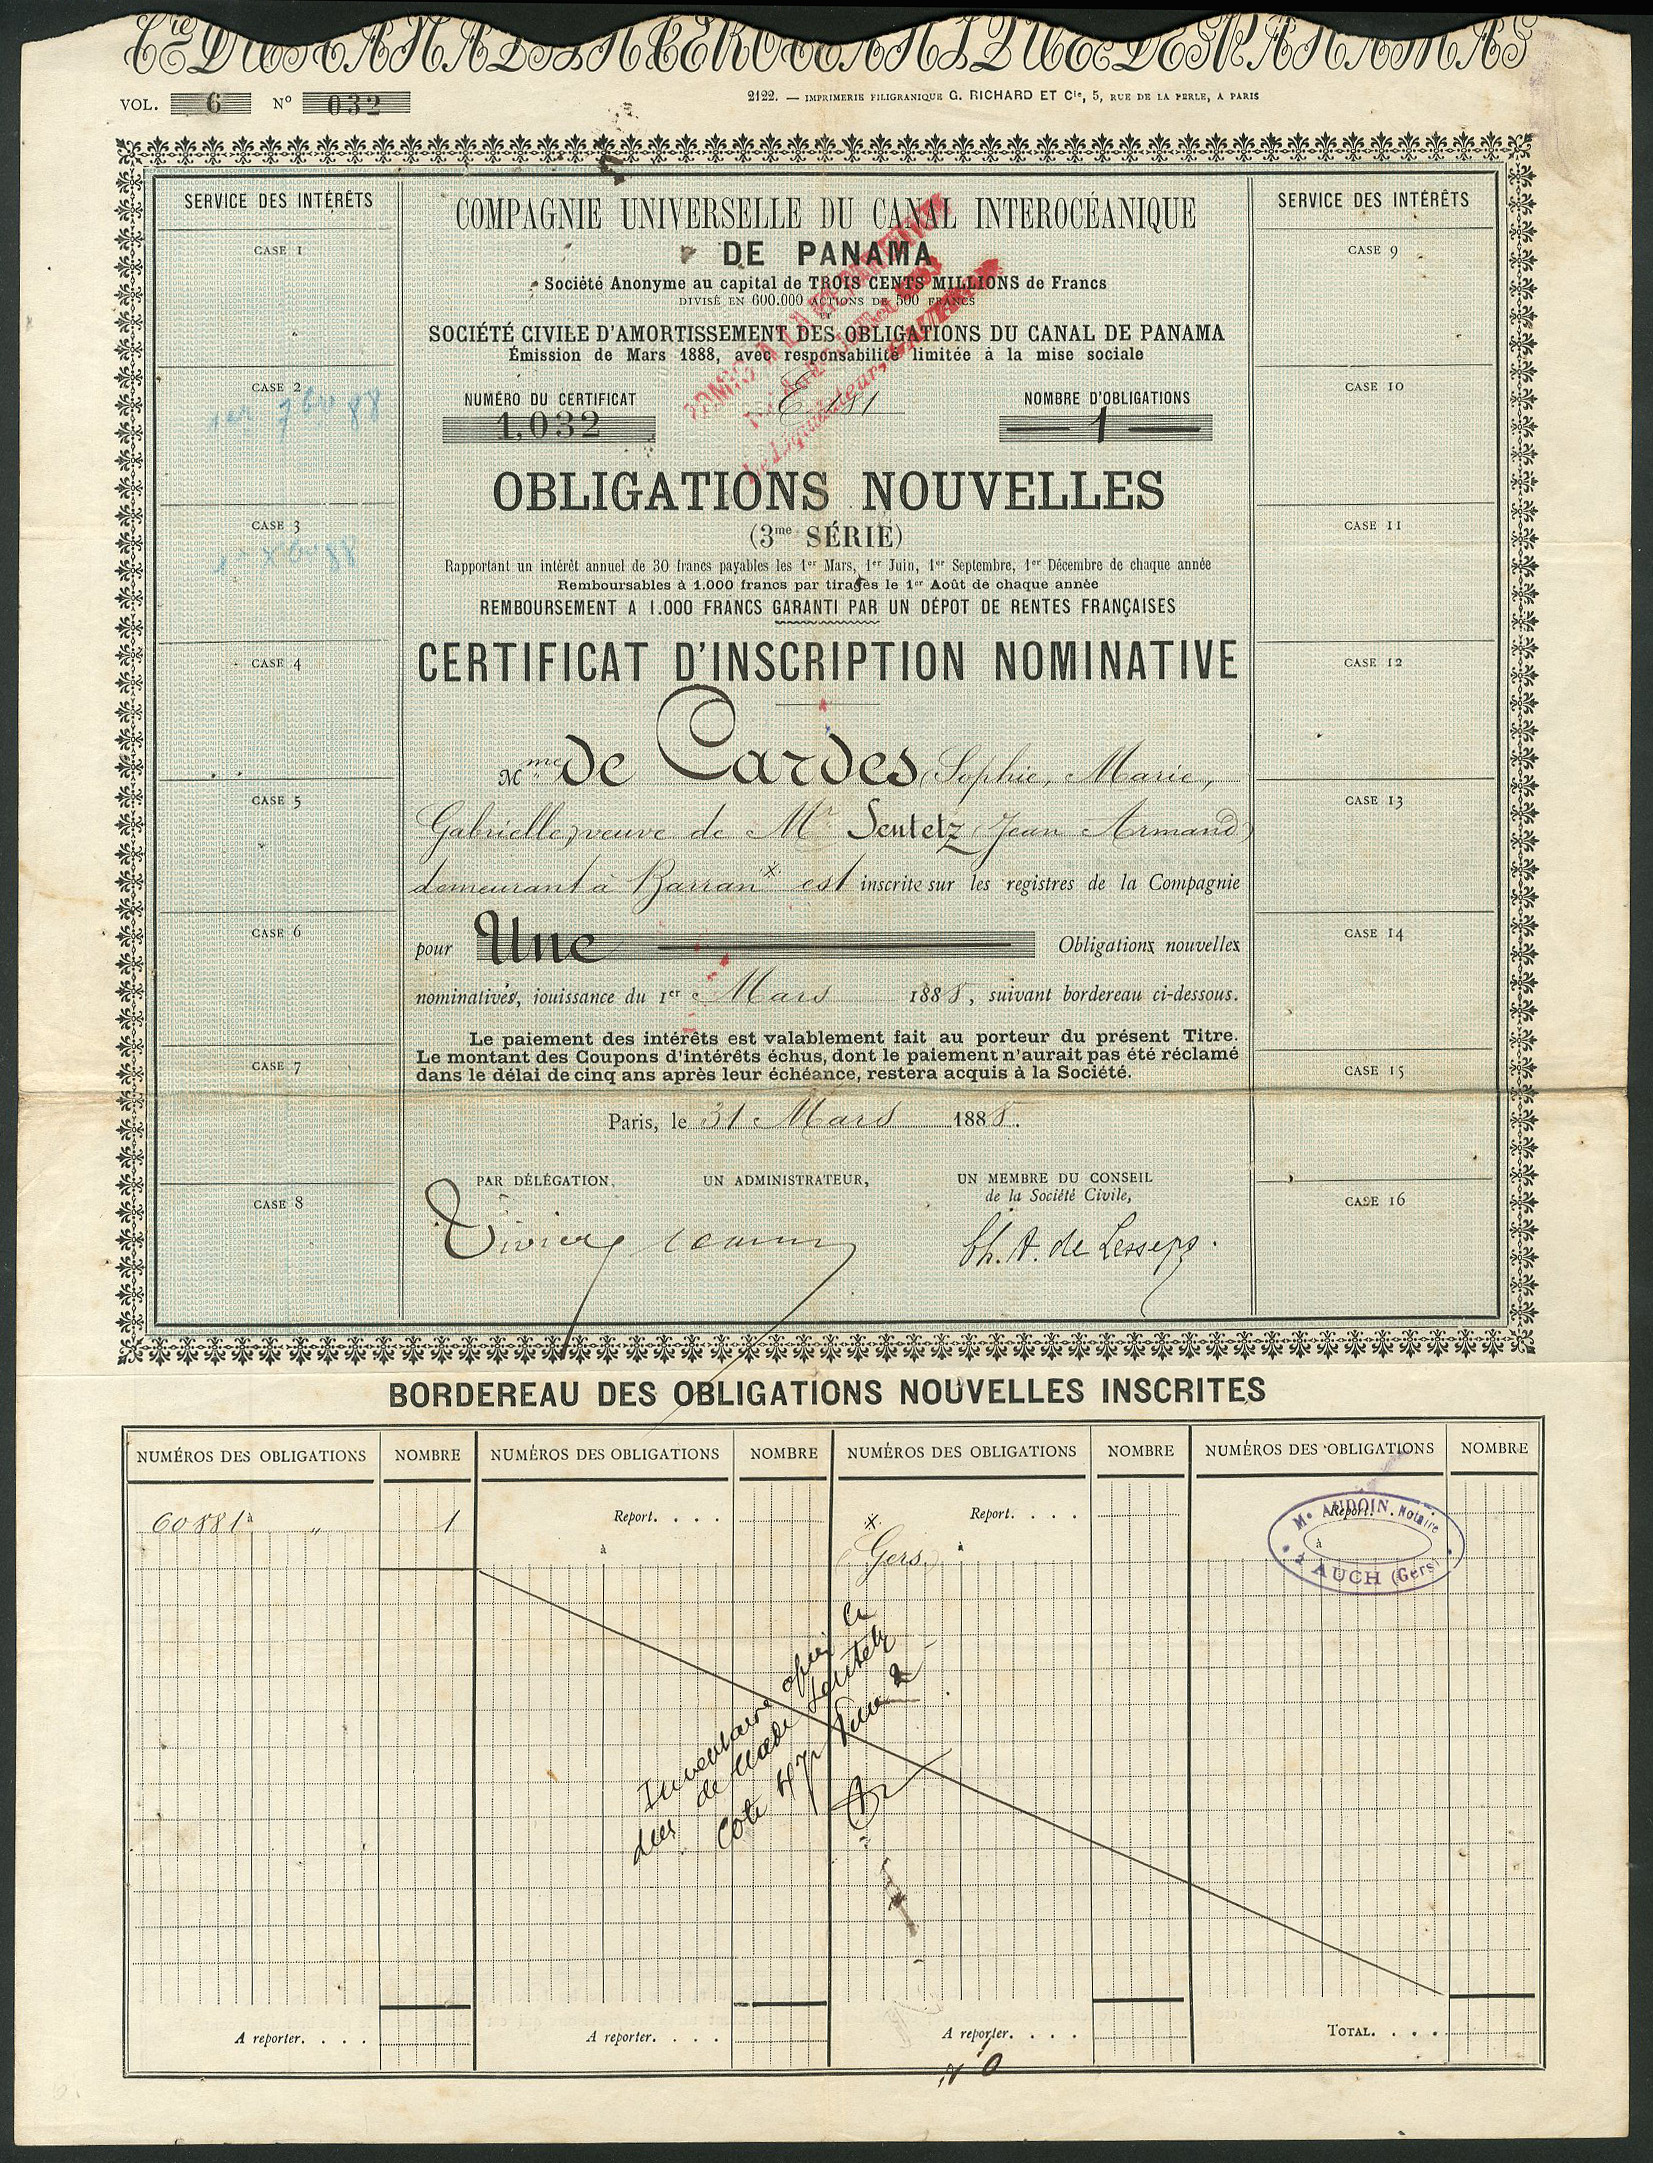 Cie DU CANAL INTEROCEANIQUE DE PANAMA
VOL. 6 No 032
2122. — IMPRIMERIE FILIGRANIQUE G. RICHARD ET Cie, 5, RUE DE LA PERLE, A PARIS
SERVICE DES INTÉRÊTS
CASE 1
CASE 2
1er 7bre 88
CASE 3
1er Xbre 88
CASE 4
CASE 5
CASE 6
CASE 7
CASE 8
COMPAGNIE UNIVERSELLE DU CANAL INTEROCÉANIQUE
DE PANAMA
Société Anonyme au capital de TROIS CENTS MILLIONS de Francs
DIVISÉ EN 600.000 ACTIONS DE 500 FRANCS
SOCIÉTÉ CIVILE D'AMORTISSEMENT DES OBLIGATIONS DU CANAL DE PANAMA
Émission de Mars 1888, avec responsabilité limitée à la mise sociale
NUMÉRO DU CERTIFICAT
1,032
NOMBRE D'OBLIGATIONS
1
Le Liquidateur,
OBLIGATIONS NOUVELLES
(3me SÉRIE)
Rapportant un intérêt annuel de 30 francs payables les 1er Mars, 1er Juin, 1er Septembre, 1er Décembre de chaque année
Remboursables à 1.000 francs par tirages le 1er Août de chaque année
REMBOURSEMENT A 1.000 FRANCS GARANTI PAR UN DÉPOT DE RENTES FRANÇAISES
CERTIFICAT D'INSCRIPTION NOMINATIVE
Mme de Cardes (Sophie, Marie,
Gabrielle) veuve de Mr Sentetz (Jean Armand)
demeurant à Barran* est inscrite sur les registres de la Compagnie
pour Une Obligations nouvelles
nominatives, jouissance du 1er Mars 1888, suivant bordereau ci-dessous.
Le paiement des intérêts est valablement fait au porteur du présent Titre.
Le montant des Coupons d'intérêts échus, dont le paiement n'aurait pas été réclamé
dans le délai de cinq ans après leur échéance, restera acquis à la Société.
Paris, le 31 Mars 1888.
PAR DÉLÉGATION, UN ADMINISTRATEUR,
UN MEMBRE DU CONSEIL
de la Société Civile,
Ch. A. de Lesseps.
SERVICE DES INTÉRÊTS
CASE 9
CASE 10
CASE 11
CASE 12
CASE 13
CASE 14
CASE 15
CASE 16
BORDEREAU DES OBLIGATIONS NOUVELLES INSCRITES
NUMÉROS DES OBLIGATIONS NOMBRE NUMÉROS DES OBLIGATIONS NOMBRE NUMÉROS DES OBLIGATIONS NOMBRE NUMÉROS DES OBLIGATIONS NOMBRE
60881 à " 1 Report. . . . * Report. . . . Report. . . .
à (Gers) à à
Me AUDOIN, Notaire
à AUCH (Gers)
Inventaire après le
décès de Made Sentetz
cote 4e
A reporter. . . . A reporter. . . . A reporter. . . . TOTAL. . . . .